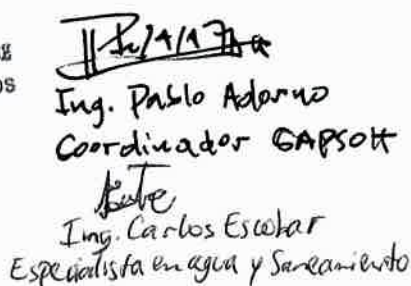 os
Ing. Pablo Adorno
Coordinador GAPSOH
Ing. Carlos Escobar
Especialista en agua y Saneamiento